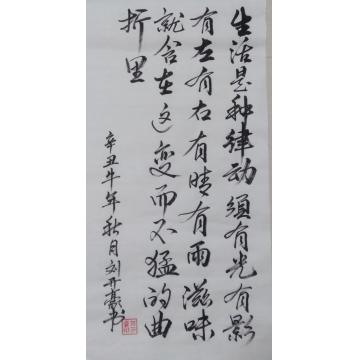 生活是种律动须有光有影
有左有右有晴有雨滋味
就含在这变而不猛的曲
折里
辛丑牛年秋月刘开豪书